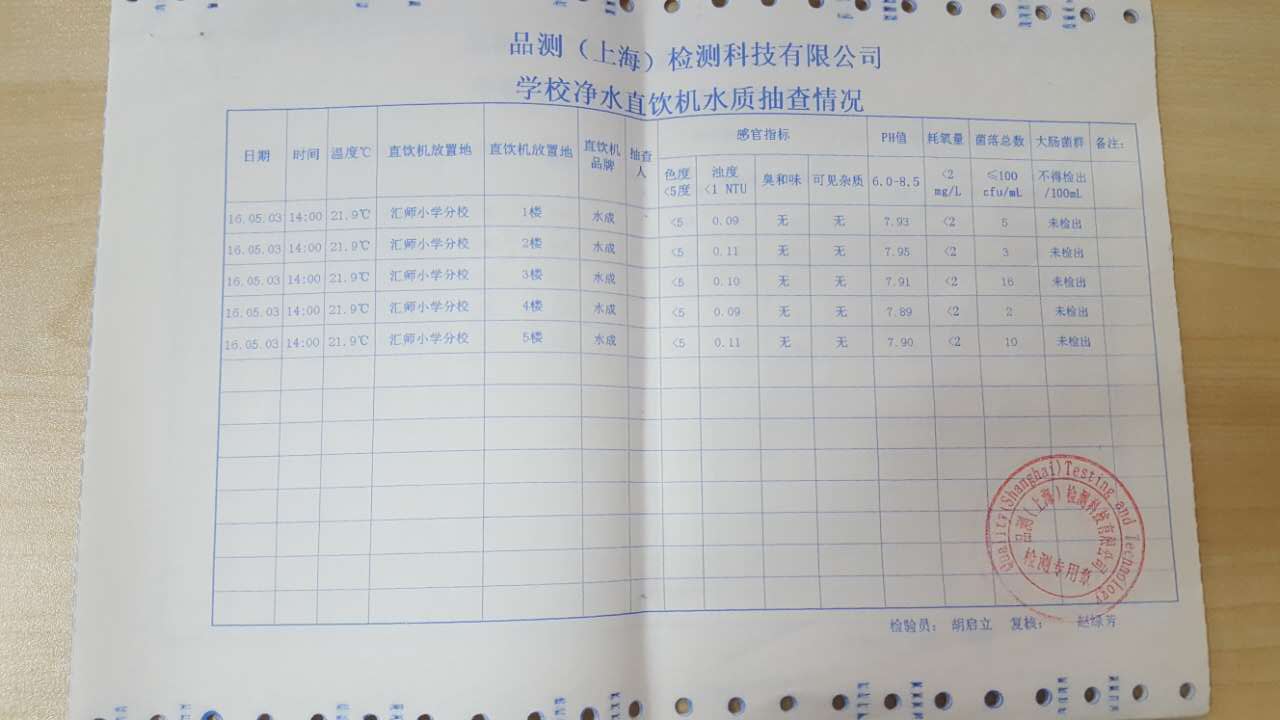 品测（上海）检测科技有限公司
学校净水直饮机水质抽查情况
日期 时间 温度℃ 直饮机放置地 直饮机放置地 直饮机品牌 抽查人 感官指标 PH值 耗氧量 菌落总数 大肠菌群 备注：
色度<5度 浊度<1 NTU 臭和味 可见杂质 6.0-8.5 <2 mg/L ≤100 cfu/mL 不得检出/100mL
16.05.03 14:00 21.9℃ 汇师小学分校 1楼 水成 <5 0.09 无 无 7.93 <2 5 未检出
16.05.03 14:00 21.9℃ 汇师小学分校 2楼 水成 <5 0.11 无 无 7.95 <2 3 未检出
16.05.03 14:00 21.9℃ 汇师小学分校 3楼 水成 <5 0.10 无 无 7.91 <2 16 未检出
16.05.03 14:00 21.9℃ 汇师小学分校 4楼 水成 <5 0.09 无 无 7.89 <2 2 未检出
16.05.03 14:00 21.9℃ 汇师小学分校 5楼 水成 <5 0.11 无 无 7.90 <2 10 未检出
Quality(Shanghai)Testing and Technology
品测（上海）检测科技有限公司
检测专用章
检验员： 胡启立 复核：